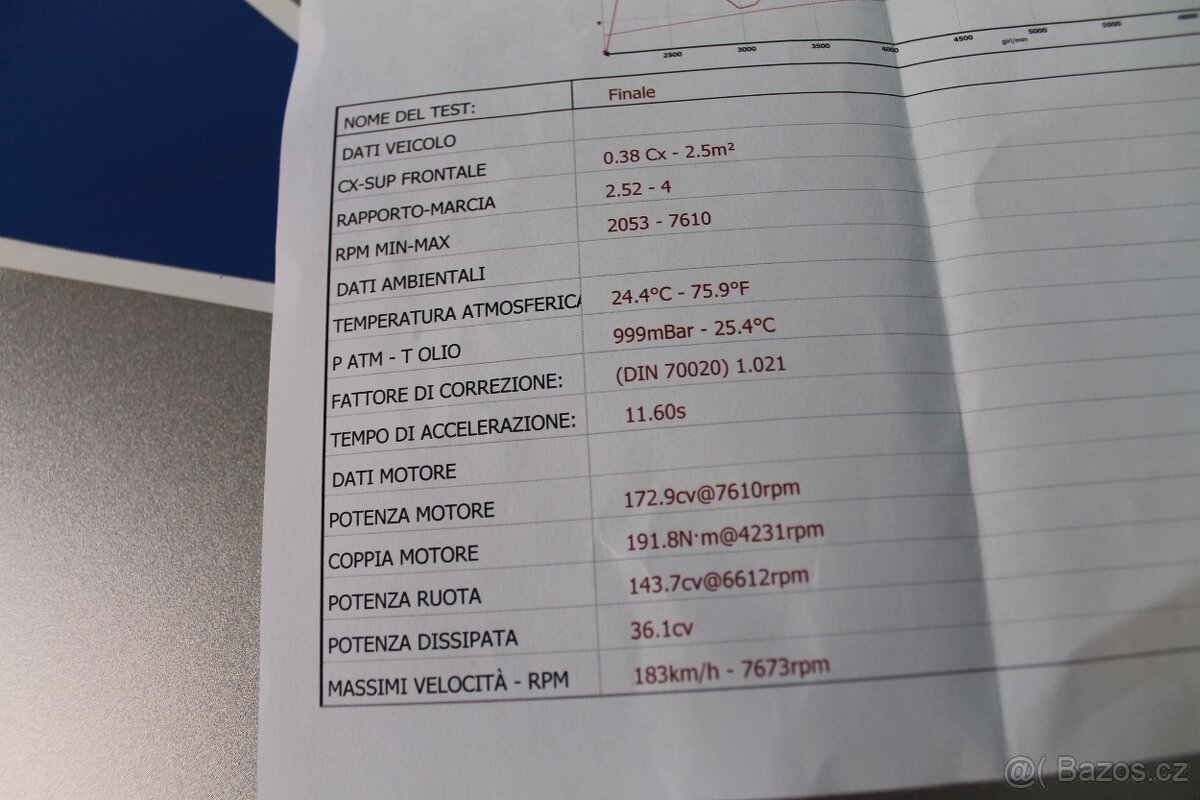 2500 3000 3500 4000 4500 5000 5500
giri/min
NOME DEL TEST: Finale
DATI VEICOLO
CX-SUP FRONTALE 0.38 Cx - 2.5m²
RAPPORTO-MARCIA 2.52 - 4
RPM MIN-MAX 2053 - 7610
DATI AMBIENTALI
TEMPERATURA ATMOSFERICA 24.4°C - 75.9°F
P ATM - T OLIO 999mBar - 25.4°C
FATTORE DI CORREZIONE: (DIN 70020) 1.021
TEMPO DI ACCELERAZIONE: 11.60s
DATI MOTORE
POTENZA MOTORE 172.9cv@7610rpm
COPPIA MOTORE 191.8N·m@4231rpm
POTENZA RUOTA 143.7cv@6612rpm
POTENZA DISSIPATA 36.1cv
MASSIMI VELOCITÀ - RPM 183km/h - 7673rpm
@( Bazos.cz